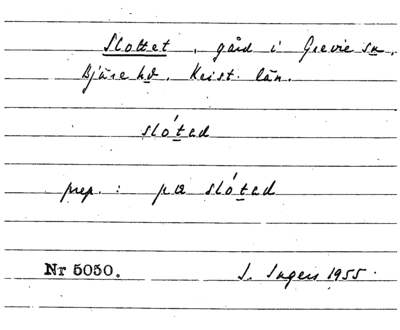 Slottet, gård i Grevie sn.
Bjäre hd. Krist. län.
slo´tad
prep. : pæ slo´tad
Nr 5050. I. Ingers 1955.